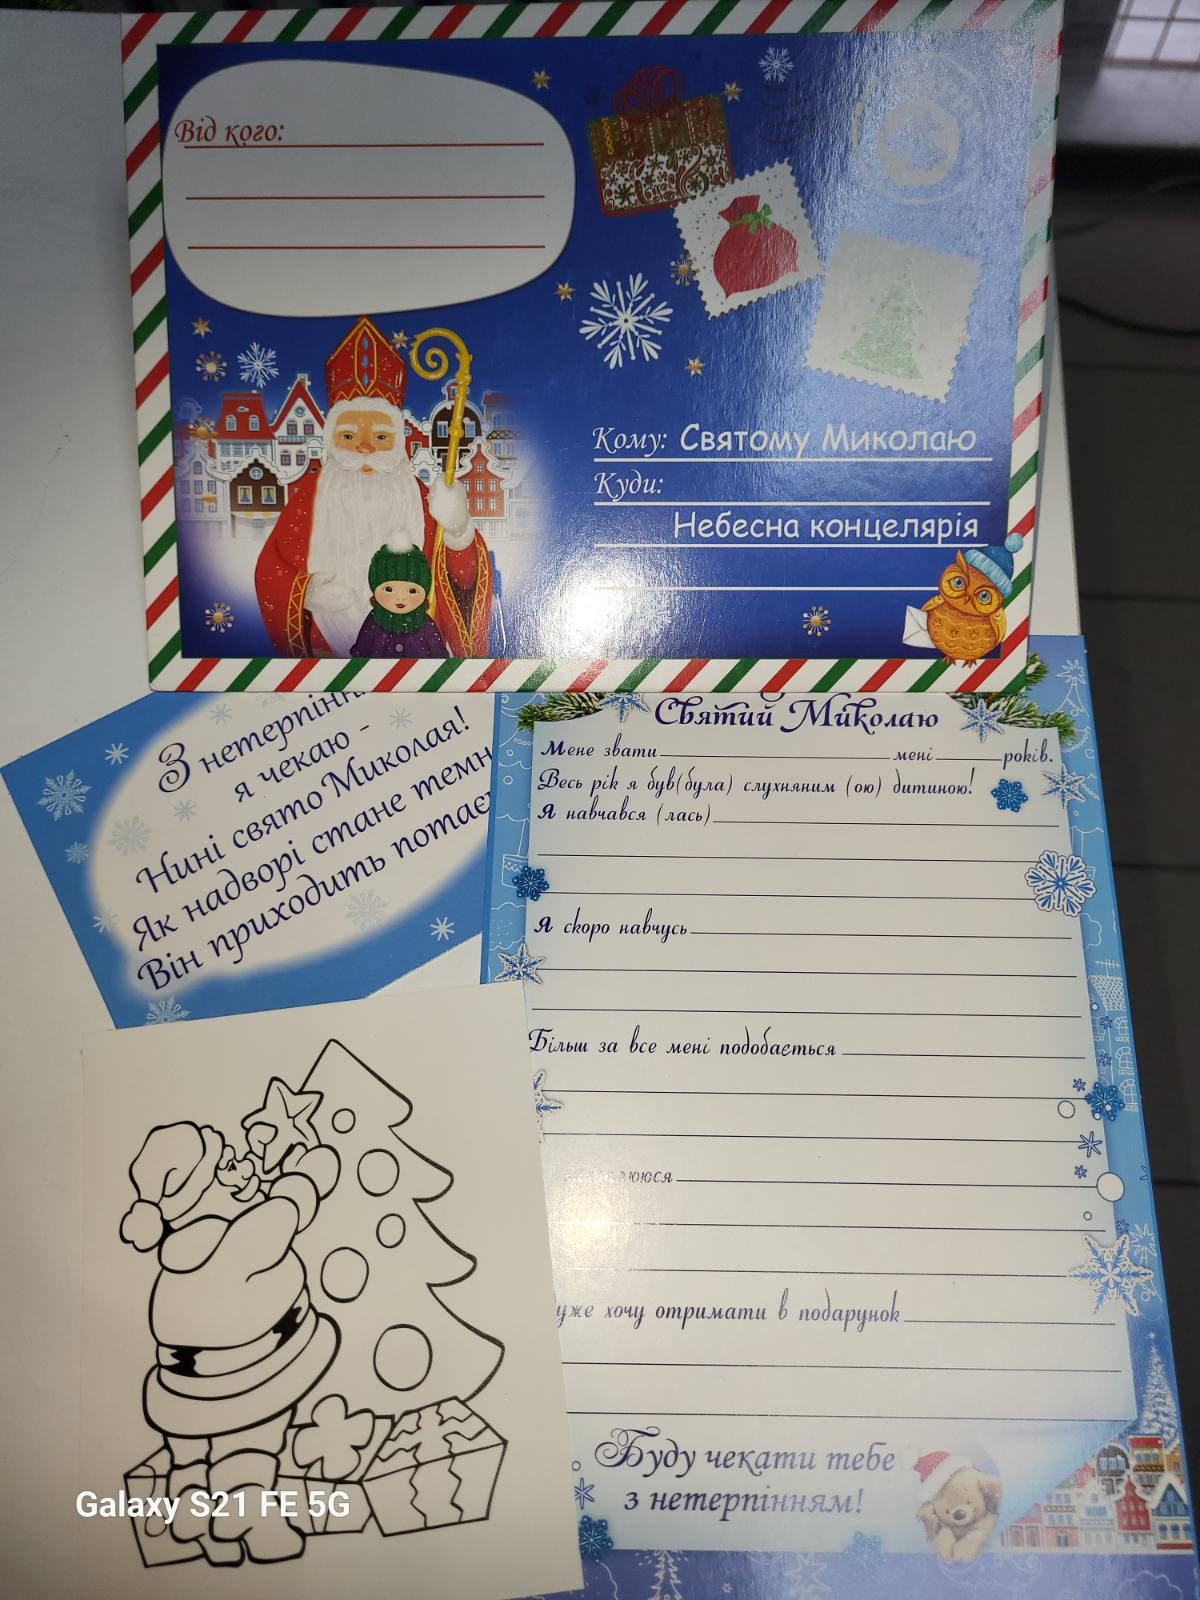 Від кого:
Кому: Святому Миколаю
Куди:
Небесна концелярія
З нетерпінн
я чекаю -
Нині свято Миколая!
Як надворі стане темн
Він приходить потає
Святий Миколаю
Мене звати мені років.
Весь рік я був(була) слухняним (ою) дитиною!
Я навчався (лась)
Я скоро навчусь
Більш за все мені подобається
уже хочу отримати в подарунок
Буду чекати тебе
з нетерпінням!
Galaxy S21 FE 5G